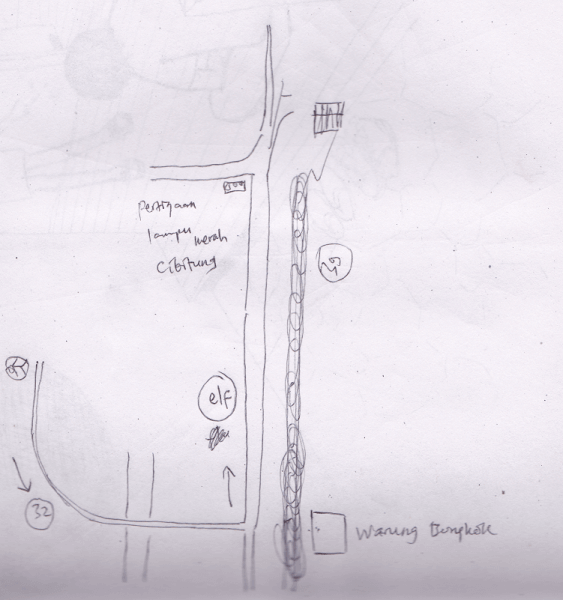 Pertigaan
lampu merah
Cibitung
elf
32
Warung Bongkok